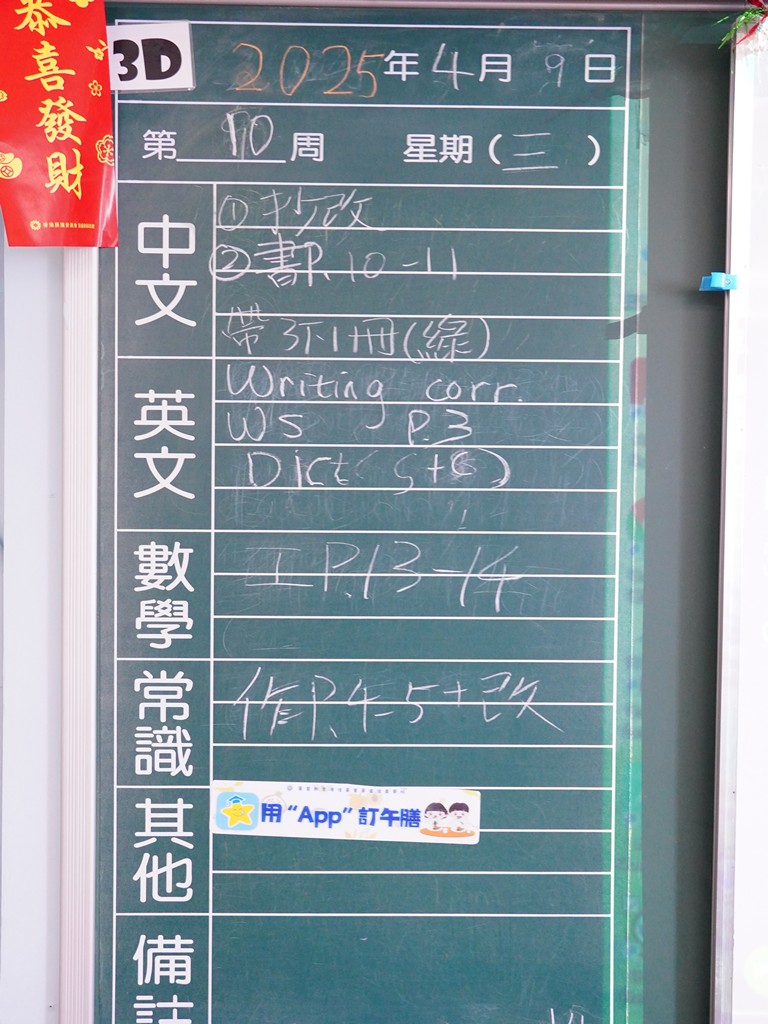 恭喜發財
3D
2025年4月9日
第 10 周 星期(三)
中文
① 抄改
② 書P.10-11
帶 冊(綠)
英文
Writing corr.
WS P.3
Dict(5+6)
數學
工P.13-14
常識
作P.4-5+改
其他
用“App”訂午膳
備註